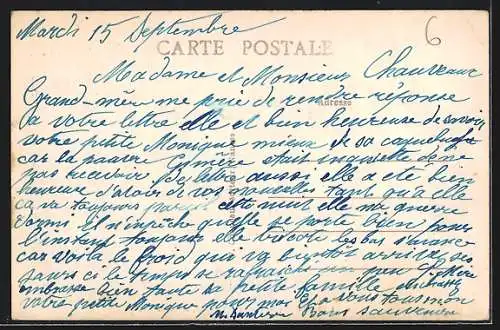 Mardi 15 Septembre
CARTE POSTALE
6
Madame et Monsieur Chauveaux
Grand-mère me prie de rendre réponse
Adresse
a votre lettre elle et bien heureuse de savoir
votre petite Monique mieux de sa coqueluche
car la pauvre mémère était inquiette de ne
pas recevoir de lettre aussi elle a été bien
heureuse d'avoir de vos nouvelles tant qu'a elle
ça va toujours cette nuit elle na guerre
dormi Il n'inpêche quelle se porte bien pour
l'instant toujours elle tricote les bas s'avance
car voila le froid qui va bientot arriver ses
jours ci le temps se rafraichi un peu
embrasse bien toute sa petite famille
votre petite Monique pour moi a vous tous mon
Bons souvenir